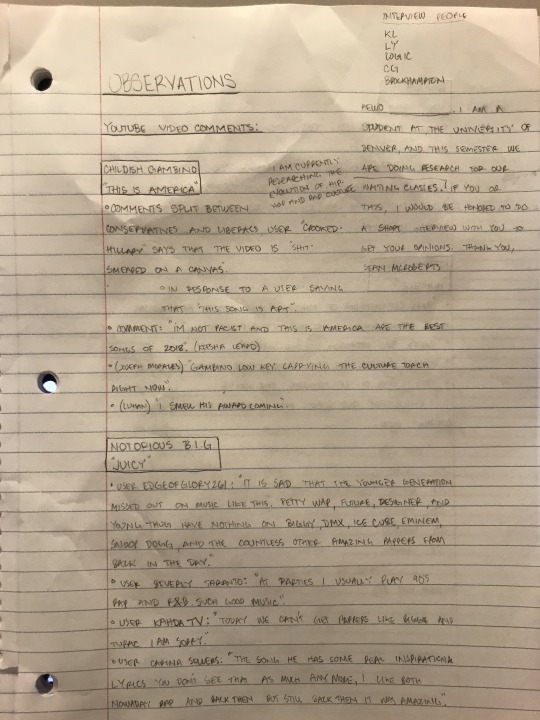 INTERVIEW PEOPLE
KL
LY
LOGIC
CG
BROCKHAMPTON
OBSERVATIONS
HELLO ______, I AM A
STUDENT AT THE UNIVERSITY OF
DENVER, AND THIS SEMESTER WE
ARE DOING RESEARCH FOR OUR
WRITING CLASSES. IF YOU OR
THIS, I WOULD BE HONORED TO DO
A SHORT INTERVIEW WITH YOU TO
GET YOUR OPINIONS. THANK YOU,
MCROBERTS
I AM CURRENTLY
RESEARCHING THE
EVOLUTION OF HIP-
HOP AND RAP CULTURE
YOUTUBE VIDEO COMMENTS:
CHILDISH GAMBINO
"THIS IS AMERICA"
• COMMENTS SPLIT BETWEEN
CONSERVATIVES AND LIBERALS USER "CROOKED
HILLARY" SAYS THAT THE VIDEO IS "SHIT
SMEARED ON A CANVAS".
◦ IN RESPONSE TO A USER SAYING
THAT "THIS SONG IS ART".
• COMMENT: "I'M NOT RACIST AND THIS IS AMERICA ARE THE BEST
SONGS OF 2018".
• (JOSEPH MORALES) "GAMBINO LOW KEY CARRYING THE CULTURE TORCH
RIGHT NOW".
• "I SMELL HIS AWARD COMING".
NOTORIOUS B.I.G
"JUICY"
• USER EDGEOFGLORY261: "IT IS SAD THAT THE YOUNGER GENERATION
MISSED OUT ON MUSIC LIKE THIS. FETTY WAP, FUTURE, DESIGNER AND
YOUNG THUG HAVE NOTHING ON BIGGY, DMX, ICE CUBE, EMINEM,
SNOOP DOGG, AND THE COUNTLESS OTHER AMAZING RAPPERS FROM
BACK IN THE DAY."
• USER BEVERLY TARANTO: "AT PARTIES I USUALLY PLAY 90'S
RAP AND R&B. SUCH GOOD MUSIC".
• USER KAHDA TV: "TODAY WE CAN'T GET RAPPERS LIKE BIGGIE AND
TUPAC I AM SORRY."
• USER CARINA "THE SONG HE HAS SOME REAL INSPIRATIONAL
LYRICS YOU DON'T SEE THAT AS MUCH ANY MORE, I LIKE BOTH
NOWADAY RAP AND BACK THEN BUT STILL BACK THEN IT WAS AMAZING".